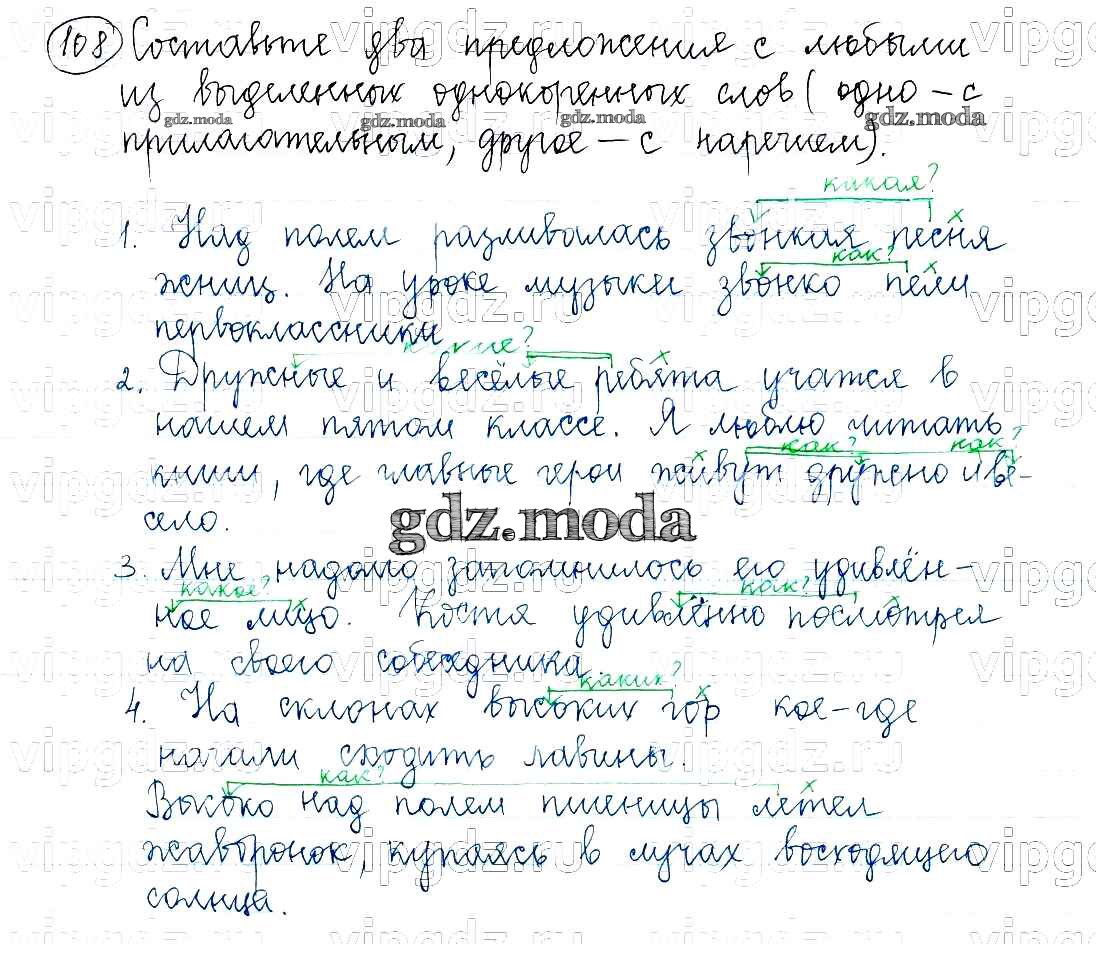 108 Составьте два предложения с любыми
из выделенных однокоренных слов (одно - с
gdz.moda gdz.moda gdz.moda
прилагательным, другое - с наречием).
какая?
1. Над полем разливалась звонкая песня
как?
жниц. На уроке музыки звонко пели
первоклассники
какие?
2. Дружные и весёлые ребята учатся в
нашем пятом классе. Я люблю читать
как? как?
книги, где главные герои живут дружно и ве-
село.
gdz.moda
3. Мне надолго запомнилось его удивлён-
какое? как?
ное лицо. Костя удивлённо посмотрел
на своего собеседника.
каких?
4. На склонах высоких гор кое-где
начали сходить лавины.
как?
Высоко над полем пшеницы летел
жаворонок, купаясь в лучах восходящего
солнца.